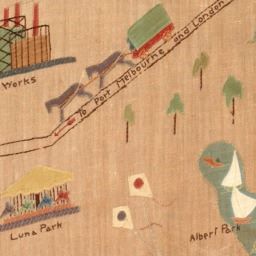 Works
To Port Melbourne and London
Luna Park
Albert Park